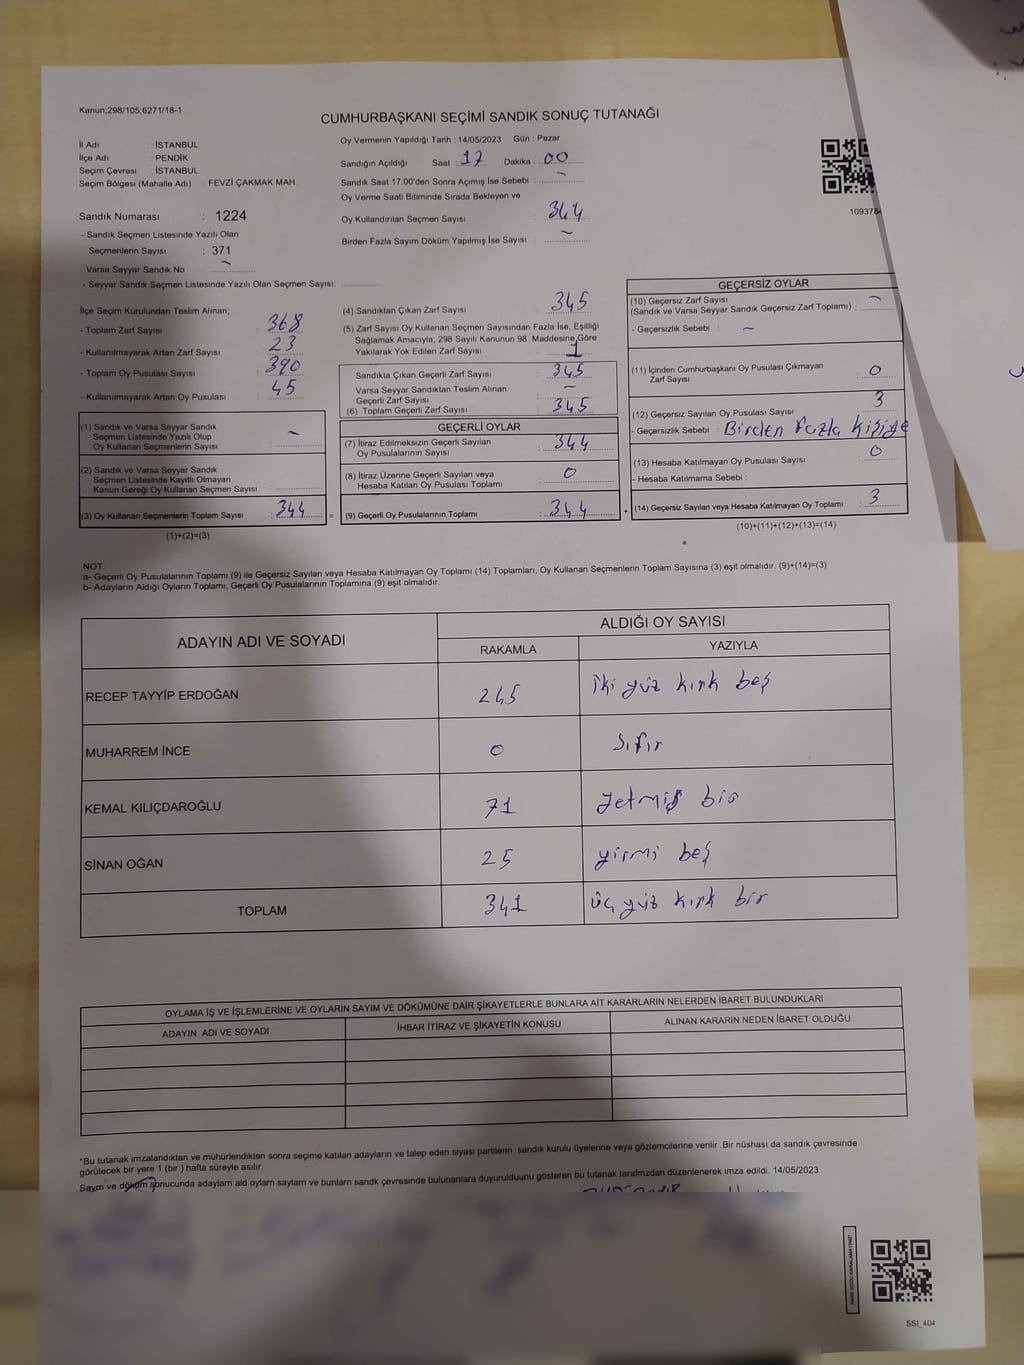 Kanun;298/105;6271/18-1
CUMHURBAŞKANI SEÇİMİ SANDIK SONUÇ TUTANAĞI
İl Adı : İSTANBUL
İlçe Adı : PENDİK
Seçim Çevresi : İSTANBUL
Seçim Bölgesi (Mahalle Adı) : FEVZİ ÇAKMAK MAH.
Sandık Numarası : 1224
- Sandık Seçmen Listesinde Yazılı Olan
Seçmenlerin Sayısı : 371
Varsa Seyyar Sandık No ~
- Seyyar Sandık Seçmen Listesinde Yazılı Olan Seçmen Sayısı:
Oy Vermenin Yapıldığı Tarih : 14/05/2023 Gün : Pazar
Sandığın Açıldığı Saat : 17 Dakika : 00
Sandık Saat 17:00'den Sonra Açımış İse Sebebi : ~
Oy Verme Saati Bitiminde Sırada Bekleyen ve
Oy Kullandırılan Seçmen Sayısı : 344
Birden Fazla Sayım Döküm Yapılmış İse Sayısı : ~
109378
İlçe Seçim Kurulundan Teslim Alınan;
- Toplam Zarf Sayısı : 368
- Kullanılmayarak Artan Zarf Sayısı : 23
- Toplam Oy Pusulası Sayısı : 390
- Kullanılmayarak Artan Oy Pusulası : 45
(1) Sandık ve Varsa Seyyar Sandık
Seçmen Listesinde Yazılı Olup
Oy Kullanan Seçmenlerin Sayısı : ~
(2) Sandık ve Varsa Seyyar Sandık
Seçmen Listesinde Kayıtlı Olmayan
Kanun Gereği Oy Kullanan Seçmen Sayısı :
(3) Oy Kullanan Seçmenlerin Toplam Sayısı : 344 =
(1)+(2)=(3)
(4) Sandıktan Çıkan Zarf Sayısı : 345
(5) Zarf Sayısı Oy Kullanan Seçmen Sayısından Fazla İse, Eşitliği
Sağlamak Amacıyla; 298 Sayılı Kanunun 98. Maddesine Göre
Yakılarak Yok Edilen Zarf Sayısı : 1
Sandıkta Çıkan Geçerli Zarf Sayısı : 345
Varsa Seyyar Sandıktan Teslim Alınan
Geçerli Zarf Sayısı : ~
(6) Toplam Geçerli Zarf Sayısı : 345
GEÇERLİ OYLAR
(7) İtiraz Edilmeksizin Geçerli Sayılan
Oy Pusulalarının Sayısı : 344
(8) İtiraz Üzerine Geçerli Sayılan veya
Hesaba Katılan Oy Pusulası Toplamı : 0
(9) Geçerli Oy Pusulalarının Toplamı : 344 +
GEÇERSİZ OYLAR
(10) Geçersiz Zarf Sayısı
(Sandık ve Varsa Seyyar Sandık Geçersiz Zarf Toplamı) : ~
- Geçersizlik Sebebi : ~
(11) İçinden Cumhurbaşkanı Oy Pusulası Çıkmayan
Zarf Sayısı : 0
(12) Geçersiz Sayılan Oy Pusulası Sayısı : 3
- Geçersizlik Sebebi : Birden Fazla kişiye
(13) Hesaba Katılmayan Oy Pusulası Sayısı : 0
- Hesaba Katılmama Sebebi :
(14) Geçersiz Sayılan veya Hesaba Katılmayan Oy Toplamı : 3
(10)+(11)+(12)+(13)=(14)
NOT:
a- Geçerli Oy Pusulalarının Toplamı (9) ile Geçersiz Sayılan veya Hesaba Katılmayan Oy Toplamı (14) Toplamları, Oy Kullanan Seçmenlerin Toplam Sayısına (3) eşit olmalıdır. (9)+(14)=(3)
b- Adayların Aldığı Oyların Toplamı, Geçerli Oy Pusulalarının Toplamına (9) eşit olmalıdır.
ADAYIN ADI VE SOYADI
ALDIĞI OY SAYISI
RAKAMLA YAZIYLA
RECEP TAYYİP ERDOĞAN 245 iki yüz kırk beş
MUHARREM İNCE 0 Sıfır
KEMAL KILIÇDAROĞLU 71 yetmiş bir
SİNAN OĞAN 25 yirmi beş
TOPLAM 341 üç yüz kırk bir
OYLAMA İŞ VE İŞLEMLERİNE VE OYLARIN SAYIM VE DÖKÜMÜNE DAİR ŞİKAYETLERLE BUNLARA AİT KARARLARIN NELERDEN İBARET BULUNDUKLARI
ADAYIN ADI VE SOYADI İHBAR İTİRAZ VE ŞİKAYETİN KONUSU ALINAN KARARIN NEDEN İBARET OLDUĞU
*Bu tutanak imzalandıktan ve mühürlendikten sonra seçime katılan adayların ve talep eden siyasi partilerin sandık kurulu üyelerine veya gözlemcilerine verilir .Bir nüshası da sandık çevresinde
görülecek bir yere 1 (bir ) hafta süreyle asılır.
Sayım ve döküm sonucunda adayların ald oyların sayların ve bunların sandk çevresinde bulunanlara duyurulduunu gösteren bu tutanak tarafmzdan düzenlenerek imza edildi. 14/05/2023
SSI_404